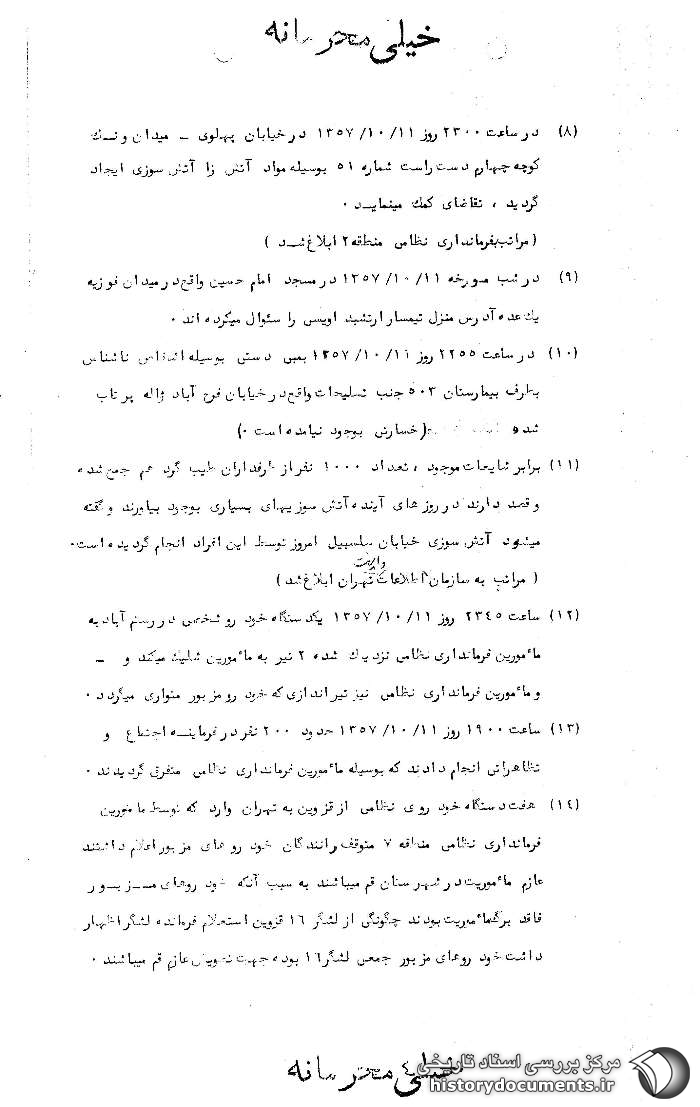 خیلی محرمانه
(۸) در ساعت ۲۳۰۰ روز ۱۳۵۷/۱۰/۱۱ در خیابان پهلوی ــ میدان ونک
کوچه چهارم دست راست شماره ۵۱ بوسیله مواد آتش زا آتش سوزی ایجاد
گردید ، تقاضای کمک مینمایند ۰
( مراتب بفرمانداری نظامی منطقه ۲ ابلاغ شد )
(۹) در شب مورخه ۱۳۵۷/۱۰/۱۱ در مسجد امام حسین واقع در میدان فوزیه
یک عده آدرس منزل تیمسار ارتشبد اویسی را سئوال میکرده اند ۰
(۱۰) در ساعت ۲۲۵۵ روز ۱۳۵۷/۱۰/۱۱ بمبی دستی بوسیله اشخاص ناشناس
بطرف بیمارستان ۵۰۳ جنب تسلیحات واقع در خیابان فرح آباد ژاله پرتاب
شده و (خسارتی بوجود نیامده است ۰)
(۱۱) برابر شایعات موجود ، تعداد ۱۰۰۰ نفر از طرفداران طیب گرد هم جمع شده
و قصد دارند در روز های آینده آتش سوزیهای بسیاری بوجود بیاورند و گفته
میشود آتش سوزی خیابان سلسبیل امروز توسط این افراد انجام گردیده است۰
( مراتب به سازمان اطلاعات وامنیت تهران ابلاغ شد )
(۱۲) ساعت ۲۳۴۵ روز ۱۳۵۷/۱۰/۱۱ یکدستگاه خود رو شخصی در رستم آباد به
مأمورین فرمانداری نظامی نزدیک شده ۲ تیر به مأمورین شلیک میکند و ــ
و مأمورین فرمانداری نظامی نیز تیراندازی که خود رو مزبور متواری میگردد ۰
(۱۳) ساعت ۱۹۰۰ روز ۱۳۵۷/۱۰/۱۱ حدود ۲۰۰ نفر در فرمانیه اجتماع و
تظاهراتی انجام دادند که بوسیله مأمورین فرمانداری نظامی متفرق گردیدند ۰
(۱۴) هفت دستگاه خود روی نظامی از قزوین به تهران وارد که توسط مأمورین
فرمانداری نظامی منطقه ۷ متوقف رانندگان خود رو های مزبور اعلام داشتند
عازم مأموریت در شهرستان قم میباشند به سبب آنکه خود روهای مزبور
فاقد برگ مأموریت بودند چگونگی از لشگر ۱۶ قزوین استعلام فرمانده لشگر اظهار
داشت خود روهای مزبور جمعی لشگر ۱۶ بوده جهت تحویل عازم قم میباشند ۰
خیلی محرمانه
مرکز بررسی اسناد تاریخی
historydocuments.ir